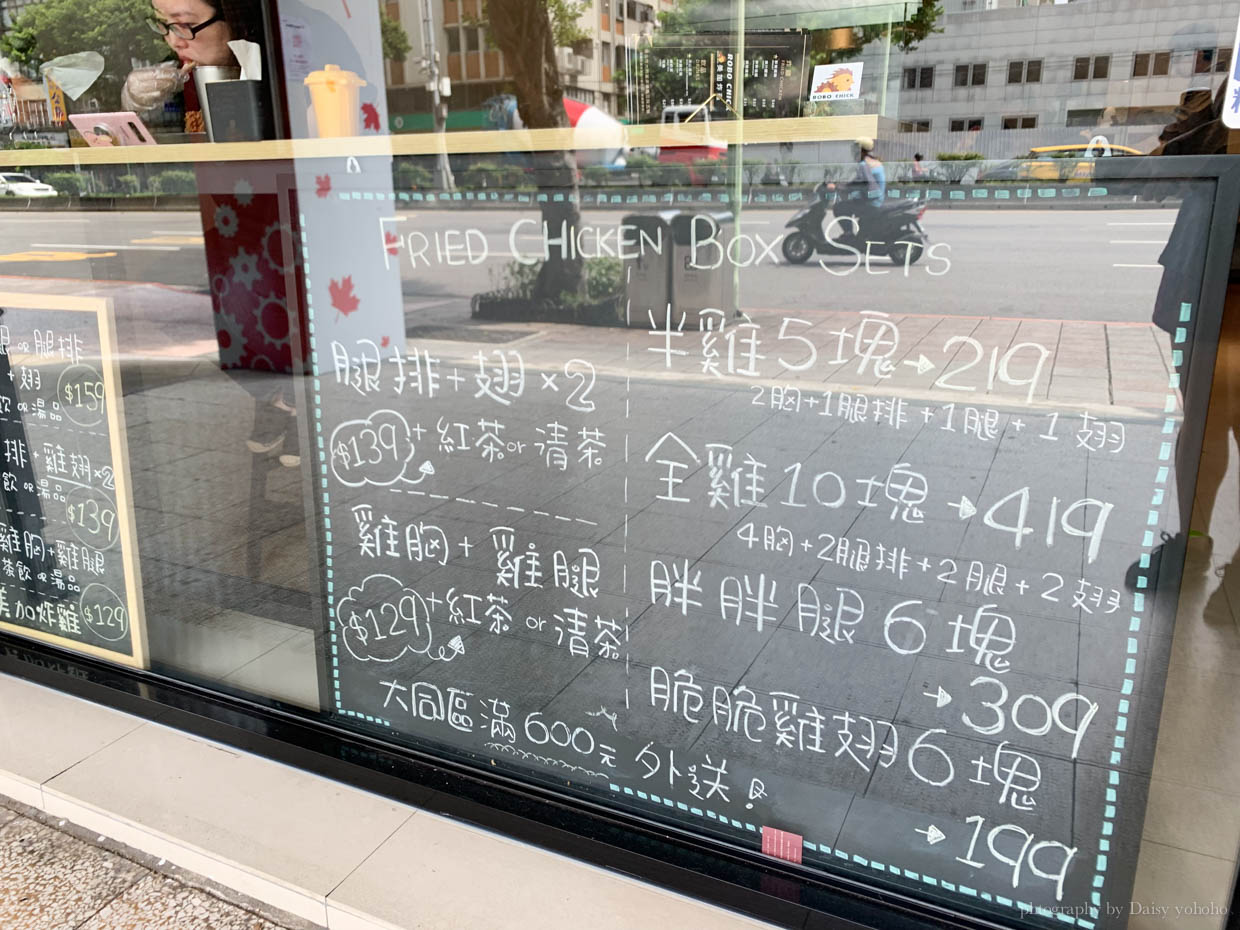 ROBO CHICK
ROBO CHICK
FRIED CHICKEN BOX SETS
腿排+翅×2
$139+紅茶or清茶
雞胸+雞腿
$129+紅茶or清茶
大同區滿600元外送!
半雞5塊→219
2胸+1腿排+1腿+1翅
全雞10塊→419
4胸+2腿排+2腿+2翅
胖胖腿6塊
→309
脆脆雞翅6塊
→199
or腿排
+翅
$159
飲or湯品
排+雞翅×2
飲or湯品
$139
雞胸+雞腿
茶飲or湯品
美加炸雞
$129
photography by Daisy yohoho